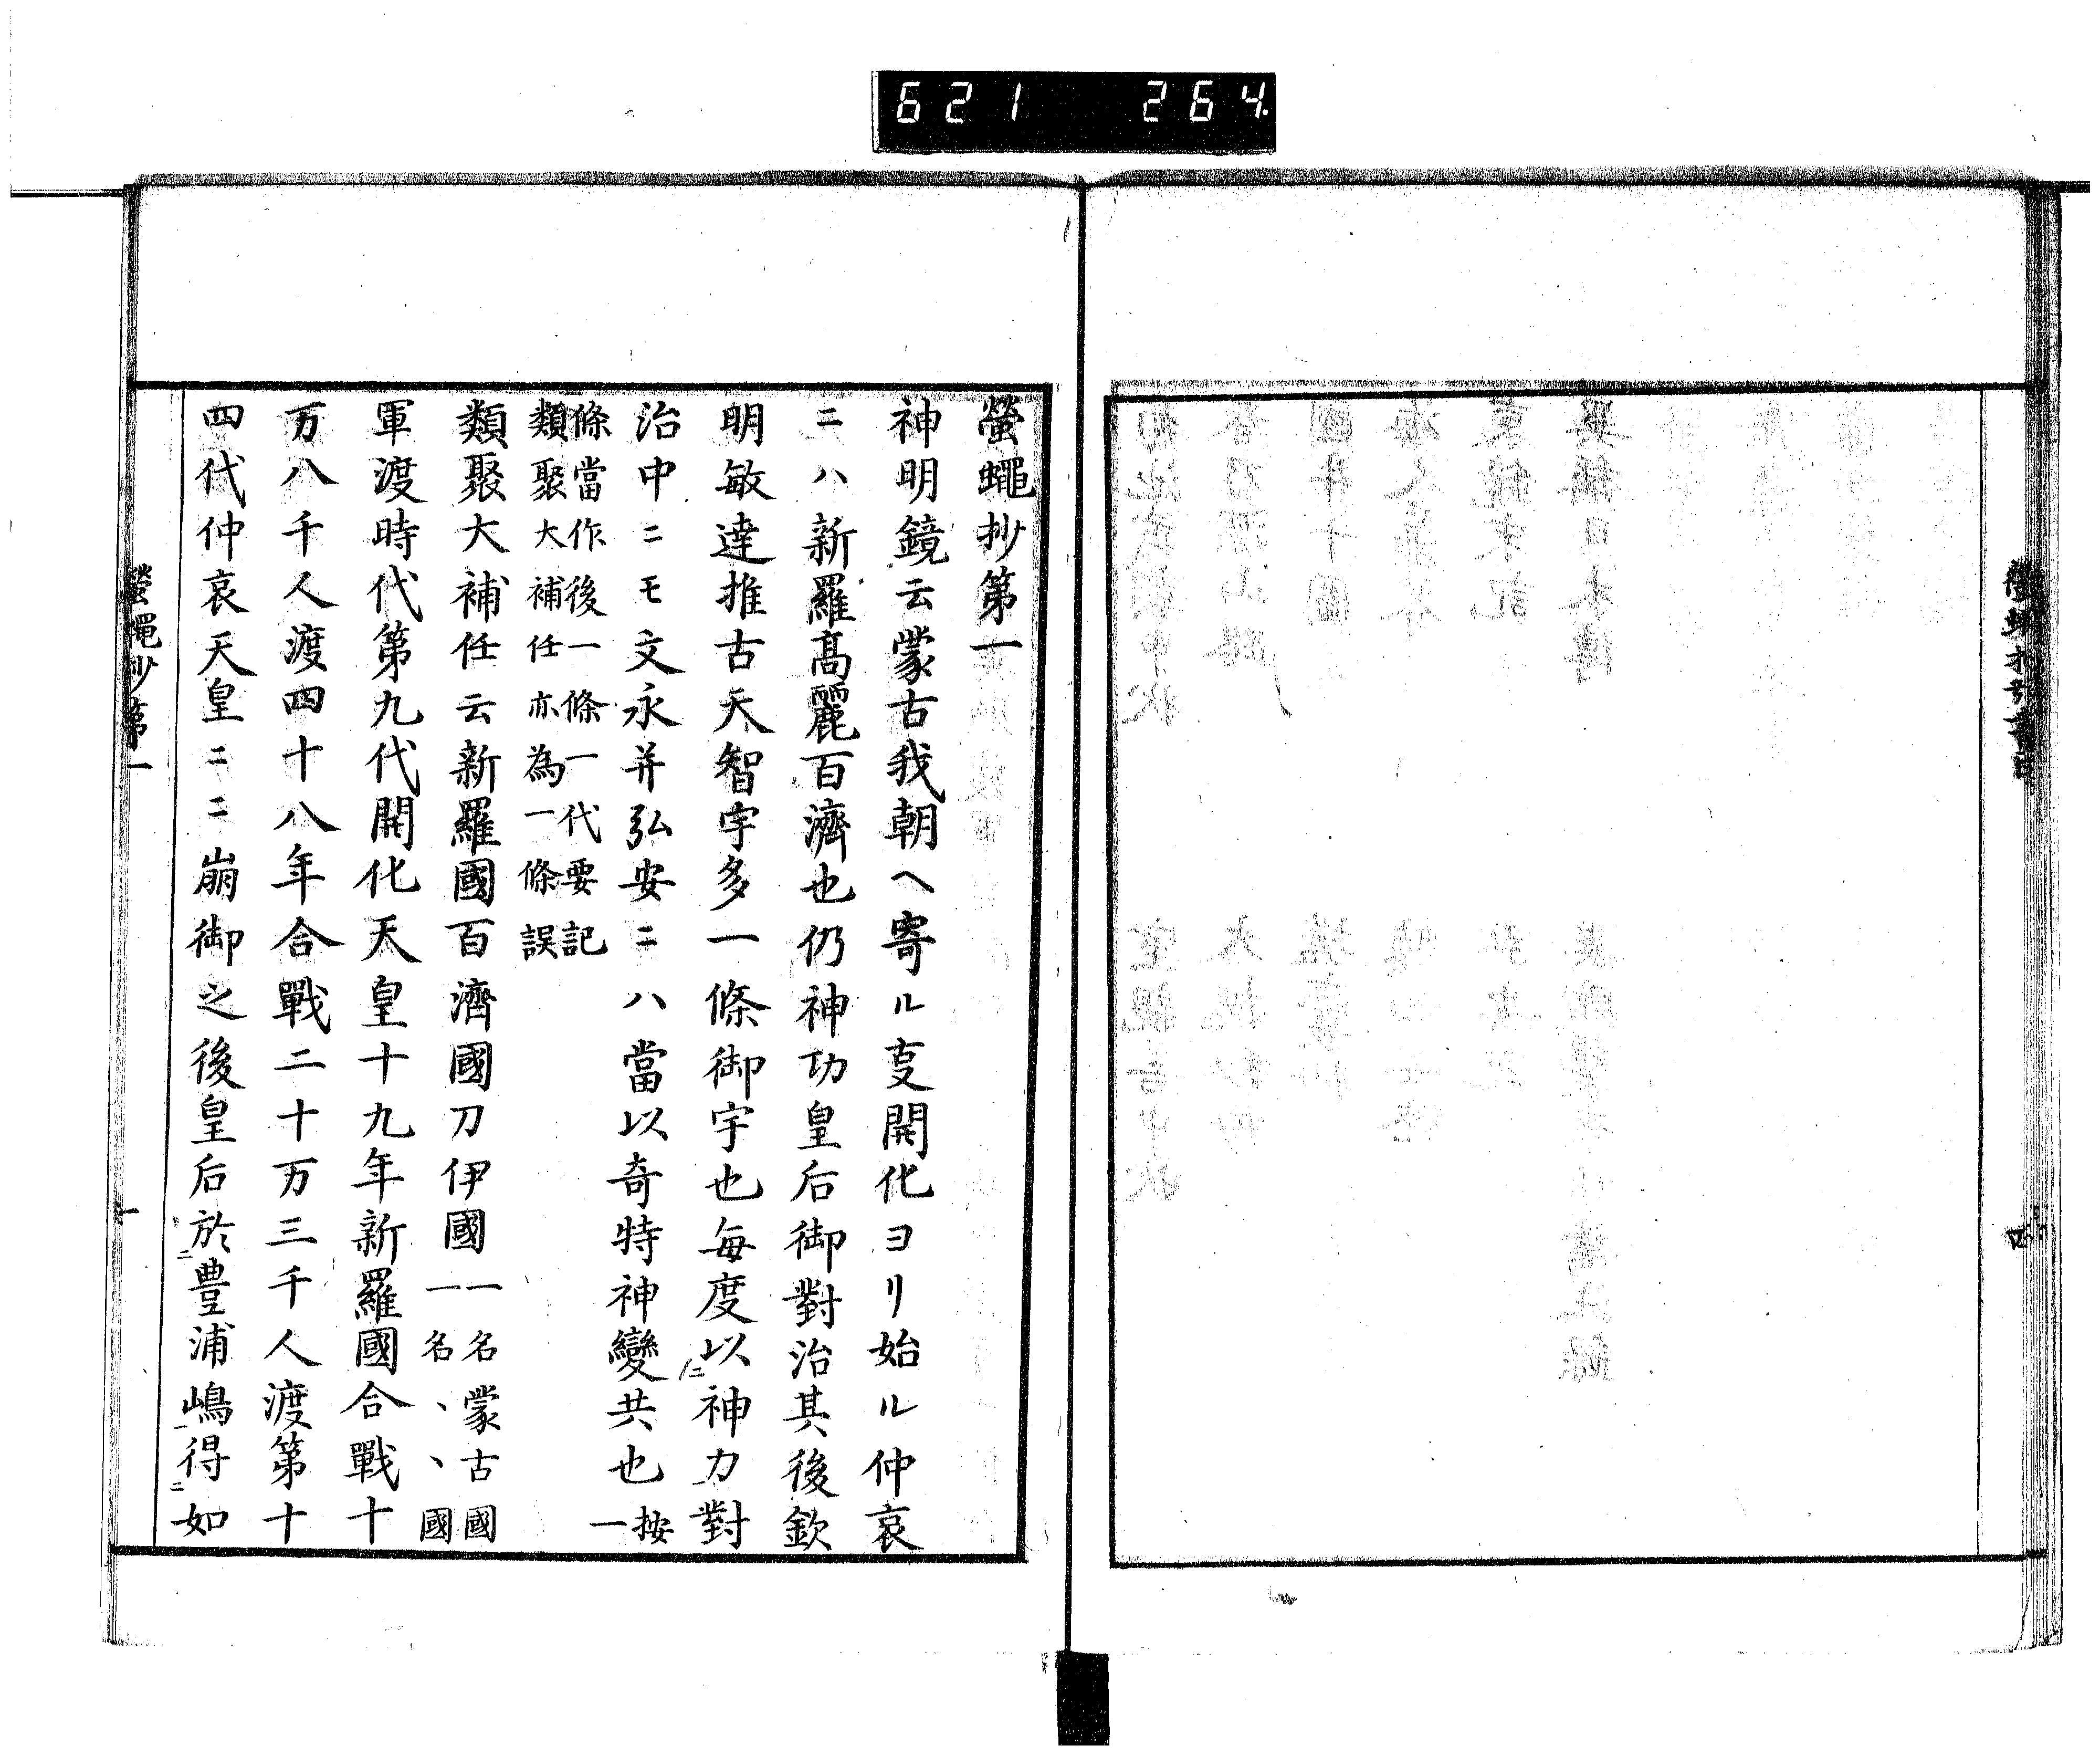 621 264
螢蠅抄第一
神明鏡云蒙古我朝ヘ寄ル叓開化ヨリ始ル仲哀
ニハ新羅髙麗百濟也仍神功皇后御對治其後欽
明敏達推古天智宇多一條御宇也毎度以神力對
治中ニモ文永并弘安ニハ當以奇特神變共也按一
條當作後一條一代要記
類聚大補任亦為一條誤
類聚大補任云新羅國百濟國刀伊國一名蒙古國一名、、國
軍渡時代第九代開化天皇十九年新羅國合戰十
万八千人渡四十八年合戰二十万三千人渡第十
四代仲哀天皇ニニ崩御之後皇后於豊浦嶋得如
螢蠅抄第一
一